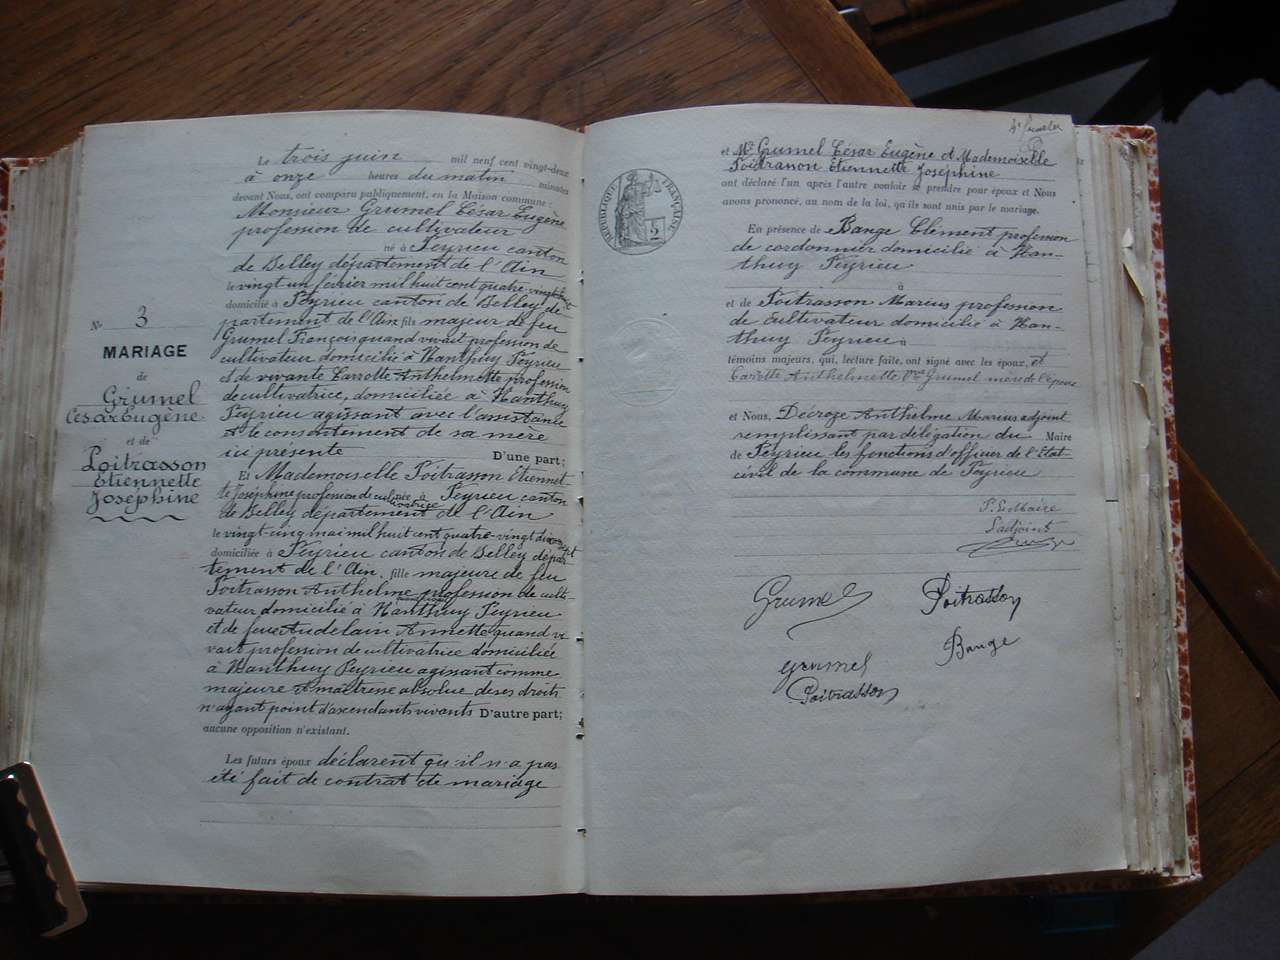 N° 3
MARIAGE
de
Grumel
César Eugène
et de
Poitrasson
Etiennette
Joséphine
Le trois juin mil neuf cent vingt-deux
à onze heures du matin minutes
devant Nous, ont comparu publiquement, en la Maison commune :
Monsieur Grumel César Eugène
profession de cultivateur
né à Peyrieu canton
de Belley département de l'Ain
le vingt un février mil huit cent quatre vingt
domicilié à Peyrieu canton de Belley dé-
partement de l'Ain fils majeur de feu
Grumel François quand vivait profession de
cultivateur domicilié à Nanthuy Peyrieu
et de vivante Carrotte Anthelmette profession
de cultivatrice, domiciliée à Nanthuy
Peyrieu agissant avec l'assistance
et le consentement de sa mère
ici présente D'une part;
Et Mademoiselle Poitrasson Etiennet-
te Joséphine profession de cultivatrice à Peyrieu canton
de Belley département de l'Ain
le vingt-cinq mai mil huit cent quatre-vingt dix-sept
domiciliée à Peyrieu canton de Belley dépar
tement de l'Ain. fille majeure de feu
Poitrasson Anthelme profession de culti-
vateur domicilié à Nanthuy Peyrieu
et de feue Audelain Annette quand vi
vait profession de cultivatrice domiciliée
à Nanthuy Peyrieu agissant comme
majeure et maîtresse absolue de ses droits
n'ayant point d'ascendants vivants D'autre part;
aucune opposition n'existant.
Les futurs époux déclarent qu'il n'a pas
été fait de contrat de mariage
RÉPUBLIQUE FRANÇAISE
et Mr Grumel César Eugène et Mademoiselle
Poitrasson Etiennette Joséphine
ont déclaré l'un après l'autre vouloir se prendre pour époux et Nous
avons prononcé, au nom de la loi, qu'ils sont unis par le mariage.
En présence de Bange Clément profession
de cordonnier domicilié à Nan-
thuy Peyrieu
à
et de Poitrasson Marius profession
de cultivateur domicilié à Nan-
thuy Peyrieu à
témoins majeurs, qui, lecture faite, ont signé avec les époux, et
Carotte Anthelmette Vve Grumel mère de l'époux
et Nous, Décroze Anthelme Marius adjoint
remplissant par délégation du Maire
de Peyrieu les fonctions d'officier de l'Etat-
civil de la commune de Peyrieu
P. Le Maire
L'adjoint
Grumel
Poitrasson
Bange
grumel
Poitrasson